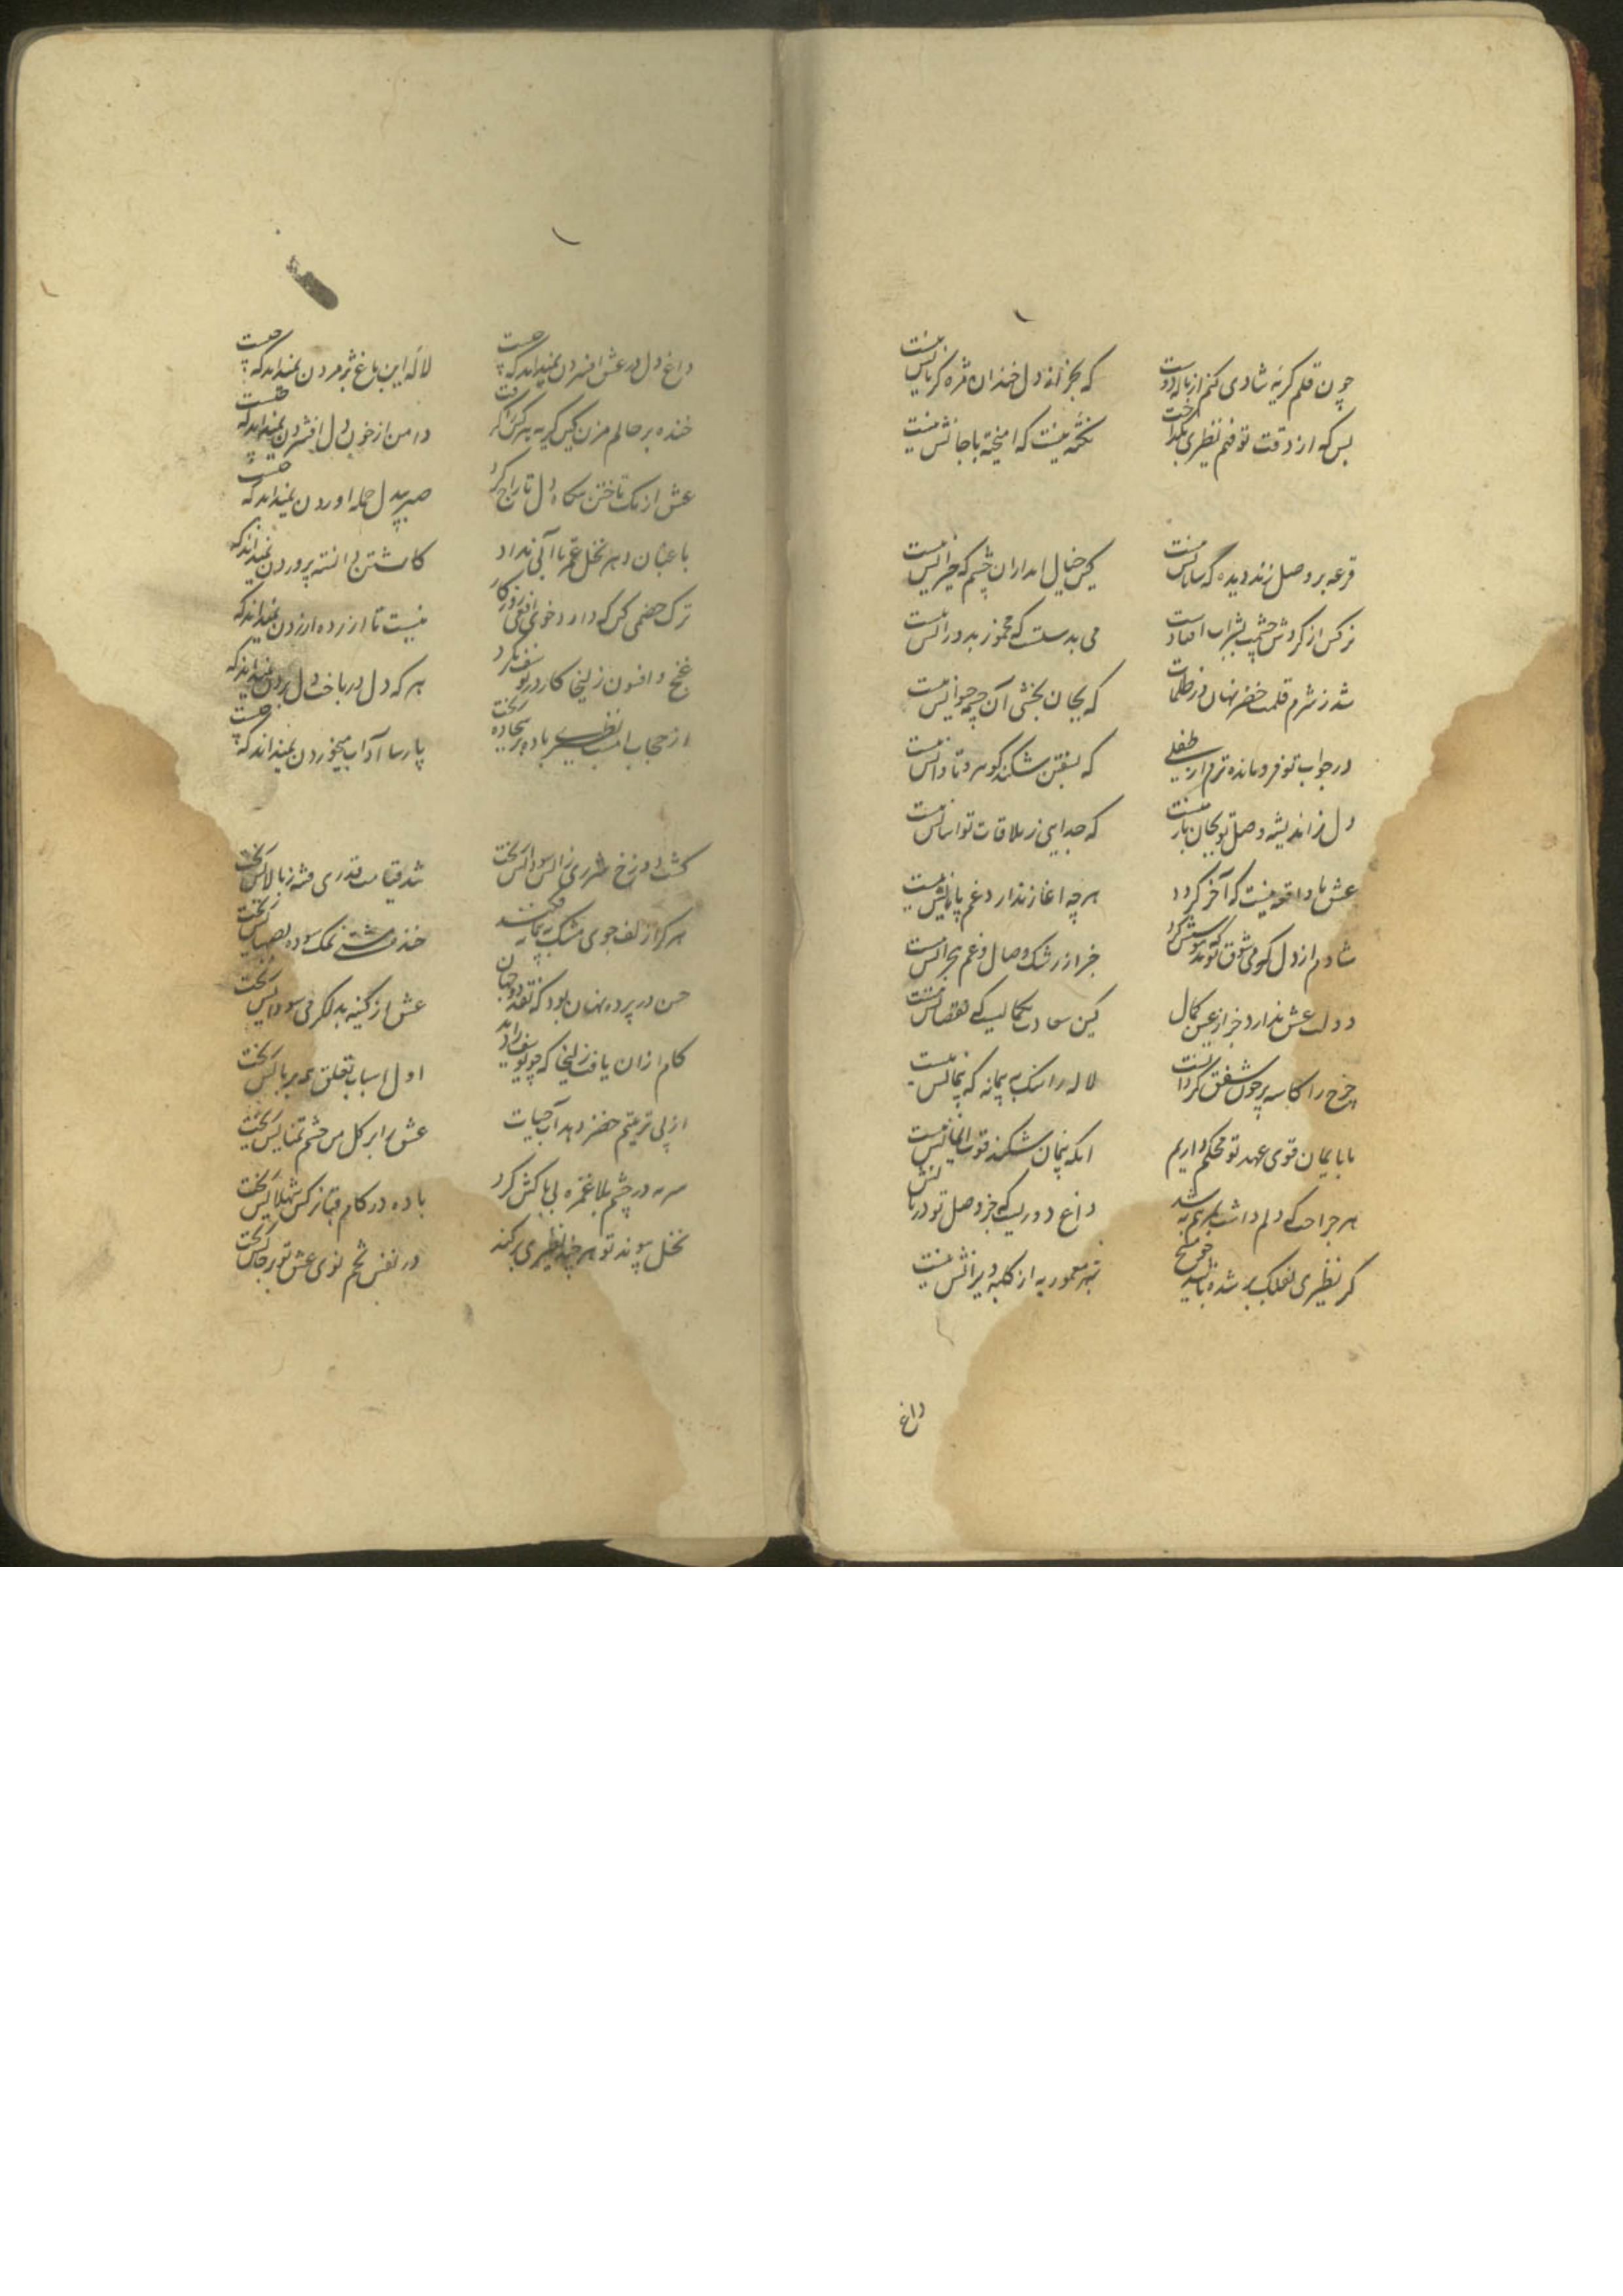 چون قلم گریه شادی کنم از ناله دوست که بجز اند دل خندان مژه گریانش نیست
بس که از دقت تو فهم نظیری بگداخت نکته نیست که امیخته با جانش نیست
قرعه بر وصل زند دیده که سامانش نیست کین خیال امد ازان چشم که حیرانش نیست
نرکس از کردش چشمت بشراب افتادست می بدستست که مخمور بدورانش نیست
شد ز شرم قلمت خضر نهان در ظلمات که بجان بخشی آن چشمه حیوانش نیست
در جواب تو فرومانده ترم از طفلی که بسفتن شکند گوهر و تاوانش نیست
دل ز اندیشه وصل تو بجان یارش نیست که جدایی ز ملاقات تو اسانش نیست
عشق ما واقعه نیست که آخر کردد هر چه اغاز ندارد غم پایانش نیست
شادم از دل که می شوق تو خبر از رشک وصال و غم هجرانش نیست
دولت عشق ندارد خبر از عین کمال کین سعادت بکمالیست که نقصانش نیست
چرخ را کاسه پر خون شفق کردانست لاله را سنک به پیمانه که پیمانش نیست
ما بایمان قوی عهد تو محکم داریم انکه پیمان شکند قوت ایمانش نیست
هر جراحت که دلم داشت بمرهم به شد داغ دوریست که جز وصل تو درمانش نیست
کر نظیری بفلک بر شده باشد چو مسیح شهر معموره به از کلبه ویرانش نیست
داغ
داغ دل در عشق افسردن نمیداند که چیست لاله این باغ پژمردن نمیداند که چیست
خنده بر حالم مزن کین گریه بر کس دامن از خون دل افشردن نمیداند که چیست
عشق از یک تاختن سکاه دل تاراج کرد صبر بیدل حمله اوردن نمیداند که چیست
باغبان دهر نخل عمر ما آبی نداد کاشتن دانسته پروردن نمیداند که
ترک خصمی کن که دارد خوی افعی روزکار نیست تا ازرده ازردن نمیداند که
غنج و افسون زلیخا کار در یوسف نکرد هر که دل درباخت دل بردن نمیداند که
از حجاب امشب نظیری باده بر سجاده ریخت پارسا آداب میخوردن نمیداند که چیست
کشت دوزخ شرری زاتش سوداش ریخت شد قیامت قدری فتنه ز بالاش ریخت
هر کرا زلف جوی مشک به پیمانه فکند خنده مشتی نمک سوده بصهباش ریخت
حسن در پرده نهان بود که نقد دو جهان عشق از کنجینه بدل کرمی سوداش ریخت
کام ازان یافت زلیخا که چو یوسف را دید اول اسباب تعلق همه در پاش ریخت
از پی تربیتم خضر دهد آب حیات عشق ابر کل من چشم تمناش ریخت
سرمه در چشم بلا غمزه بی باکش کرد باده در کام قضا نرکس شهلاش ریخت
نخل پیوند تو هر چند نظیری برکند در نفس تخم نوی عشق تو بر جاش ریخت